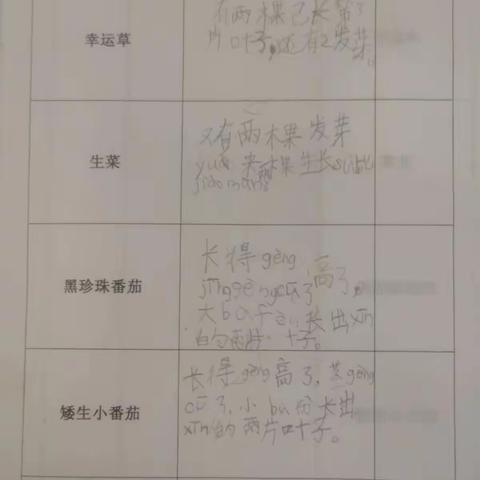 幸运草
有两棵已长第3
片叶子,还有2发芽。
生菜
又有两棵发芽
yuán来两棵生长sù比
jiào màn
黑珍珠番茄
长得gèng高了,
jīng gèng cū了
大bù fèn长出xīn
的两片叶子。
矮生小番茄
长得gèng高了,茎gèng
cū了,小bù份长出
xīn的两片叶子。